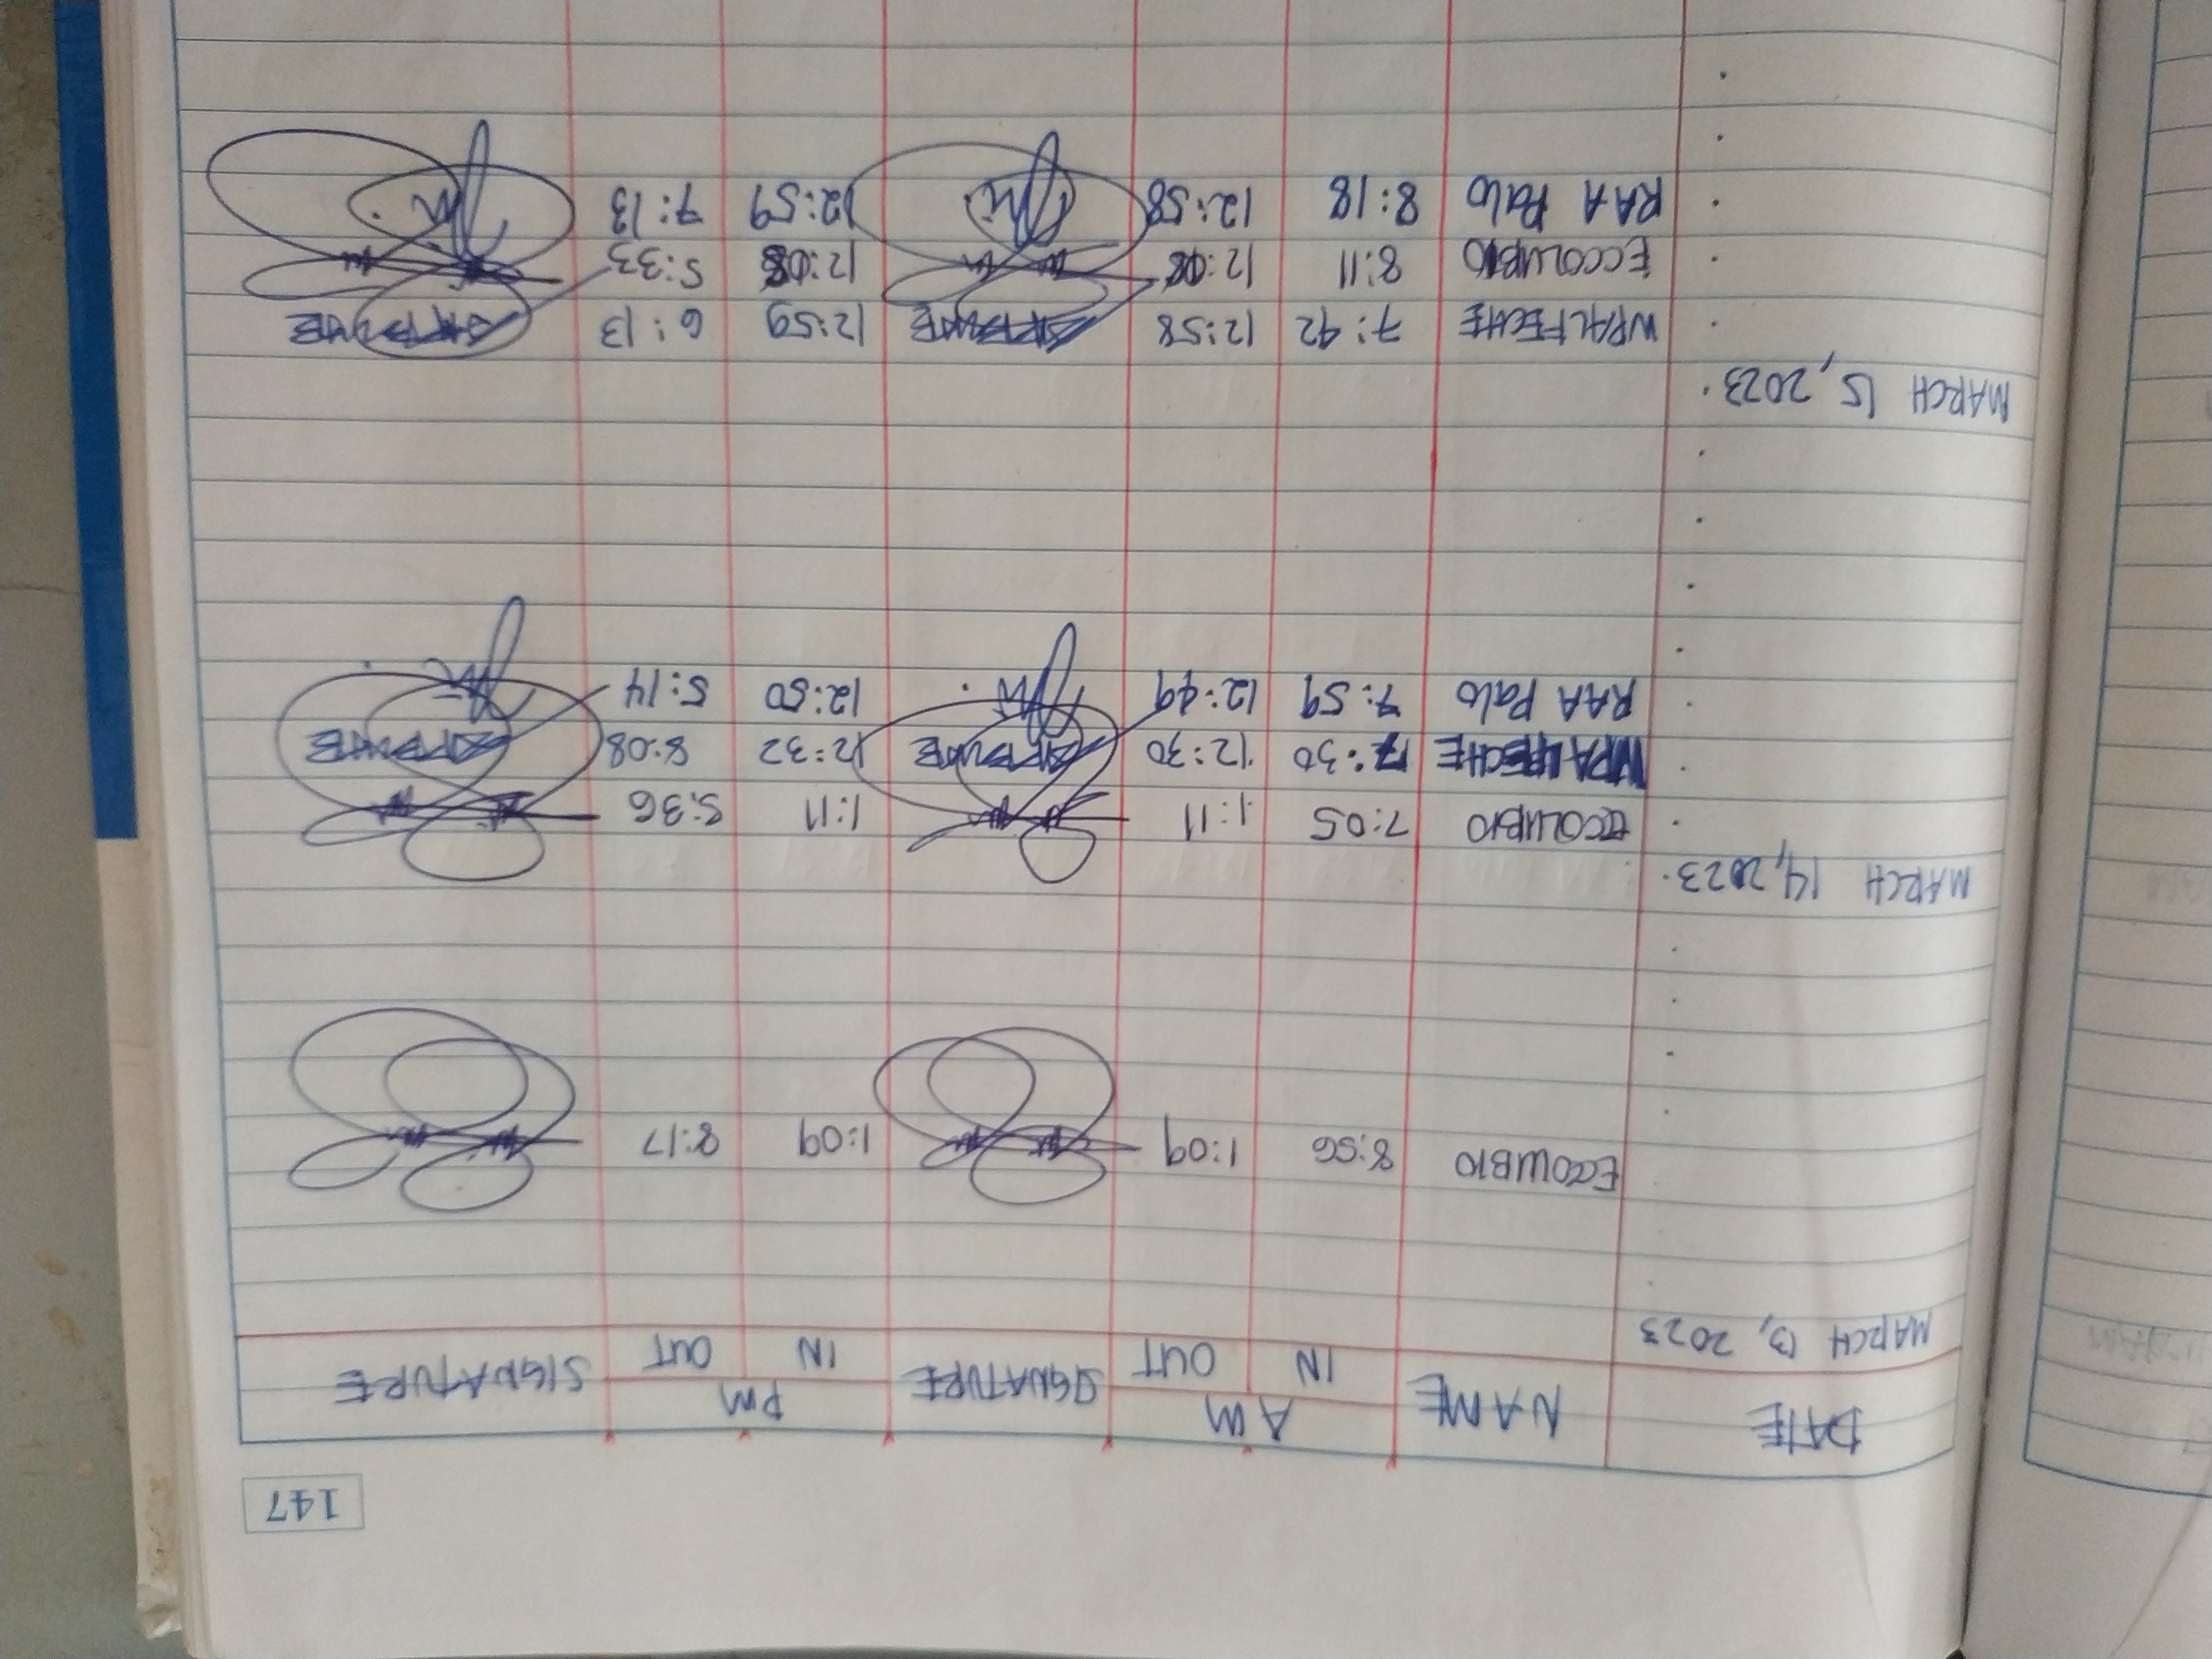 147
DATE NAME AM SIGNATURE PM SIGNATURE
IN OUT IN OUT
MARCH 13, 2023
ECCOLUBIO 8:56 1:09 1:09 8:17
MARCH 14, 2023
ECCOLUBIO 7:05 1:11 1:11 5:36
WPALFECHE 7:30 12:30 12:32 8:08
RAA Palo 7:59 12:49 12:50 5:14
MARCH 15, 2023
WPALFECHE 7:42 12:58 12:59 6:13
ECCOLUBIO 8:11 12:08 12:08 5:33
RAA Palo 8:18 12:58 12:59 7:13